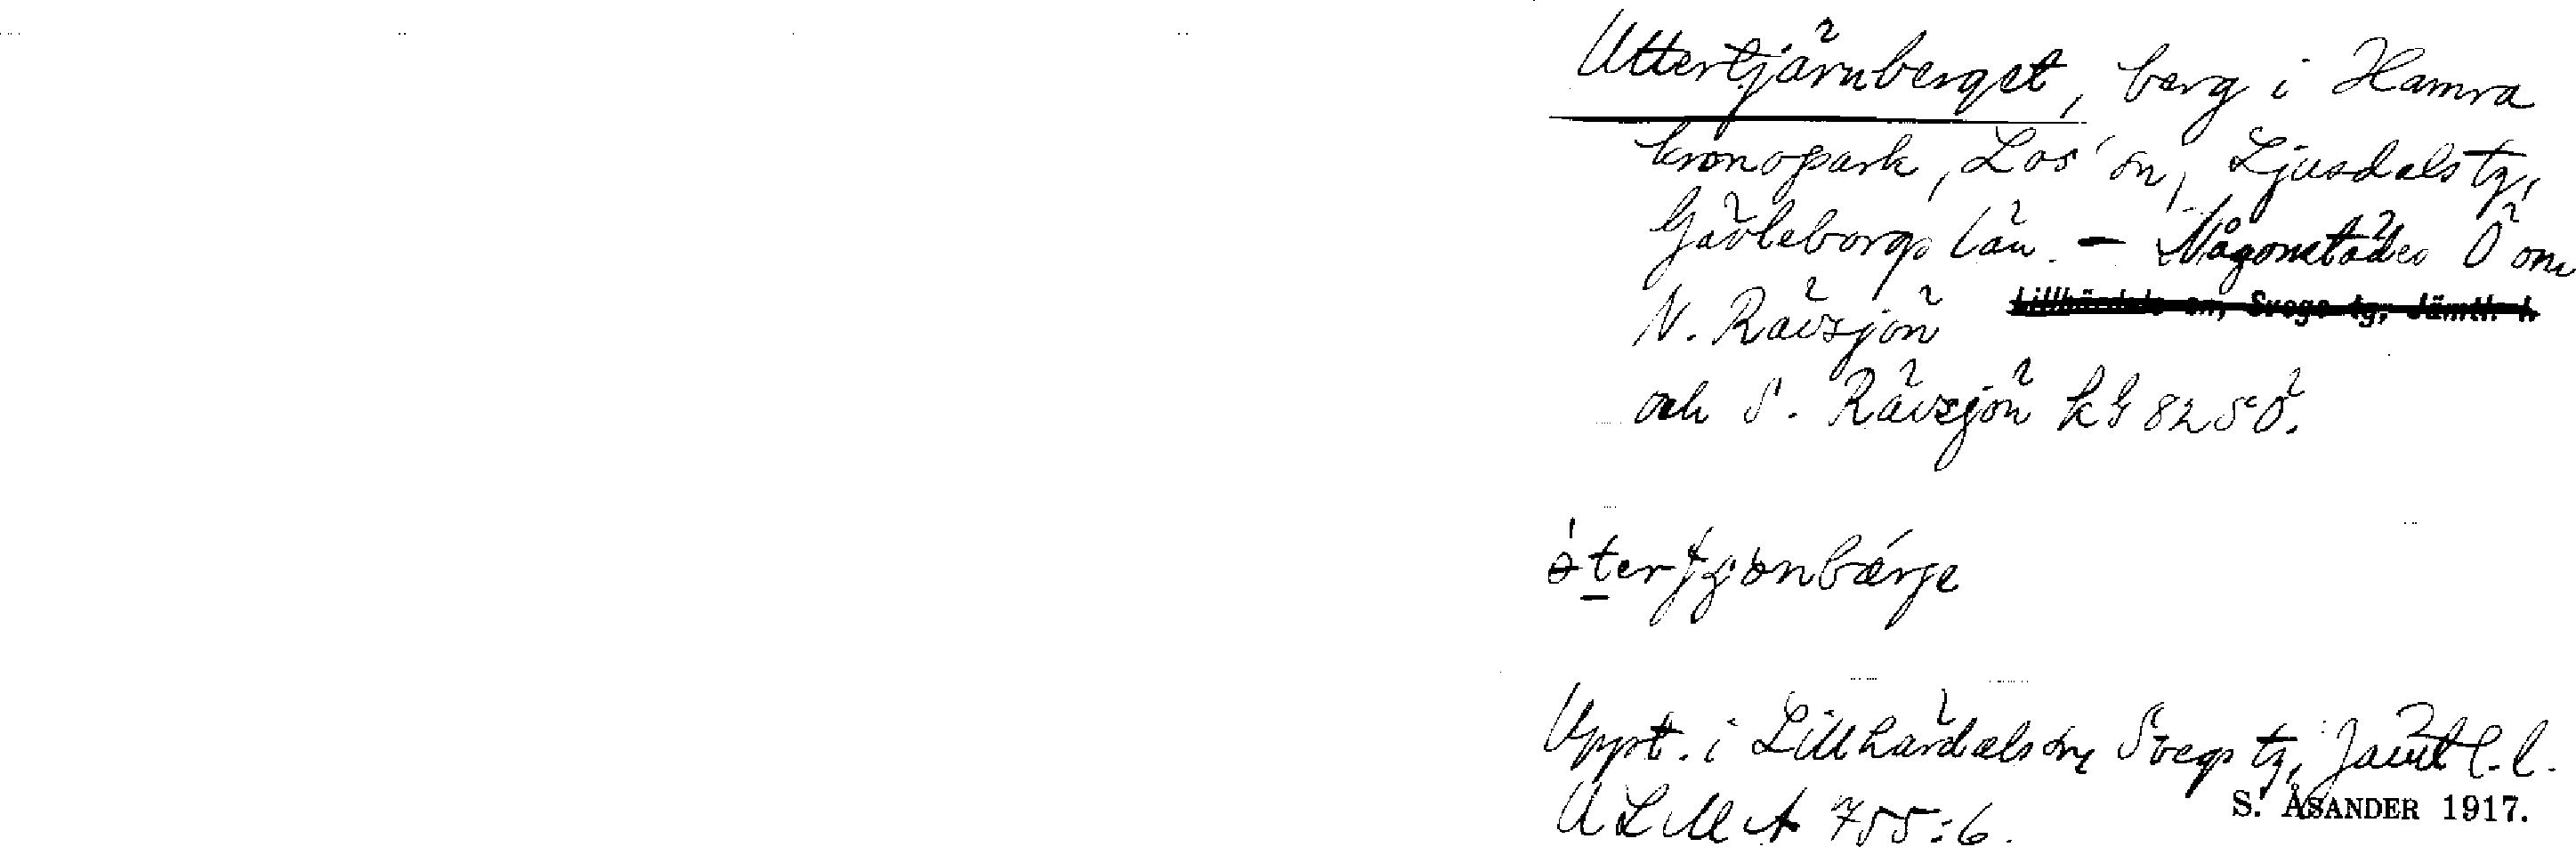 Uttertjärnberget, berg i Hamra
kronopark, Los' sn, Ljusdals tg,
Gävleborgs län. - Någonstädes Ö om
N. Rävsjön Lillhärdals sn, Svegs tg, Jämtl. l.
och S. Rävsjön kbl 82 SÖ.
Uppt. i Lillhärdals sn, Svegs tg, Jämtl. l.
ULMA 755:6.
S. ÅSANDER 1917.